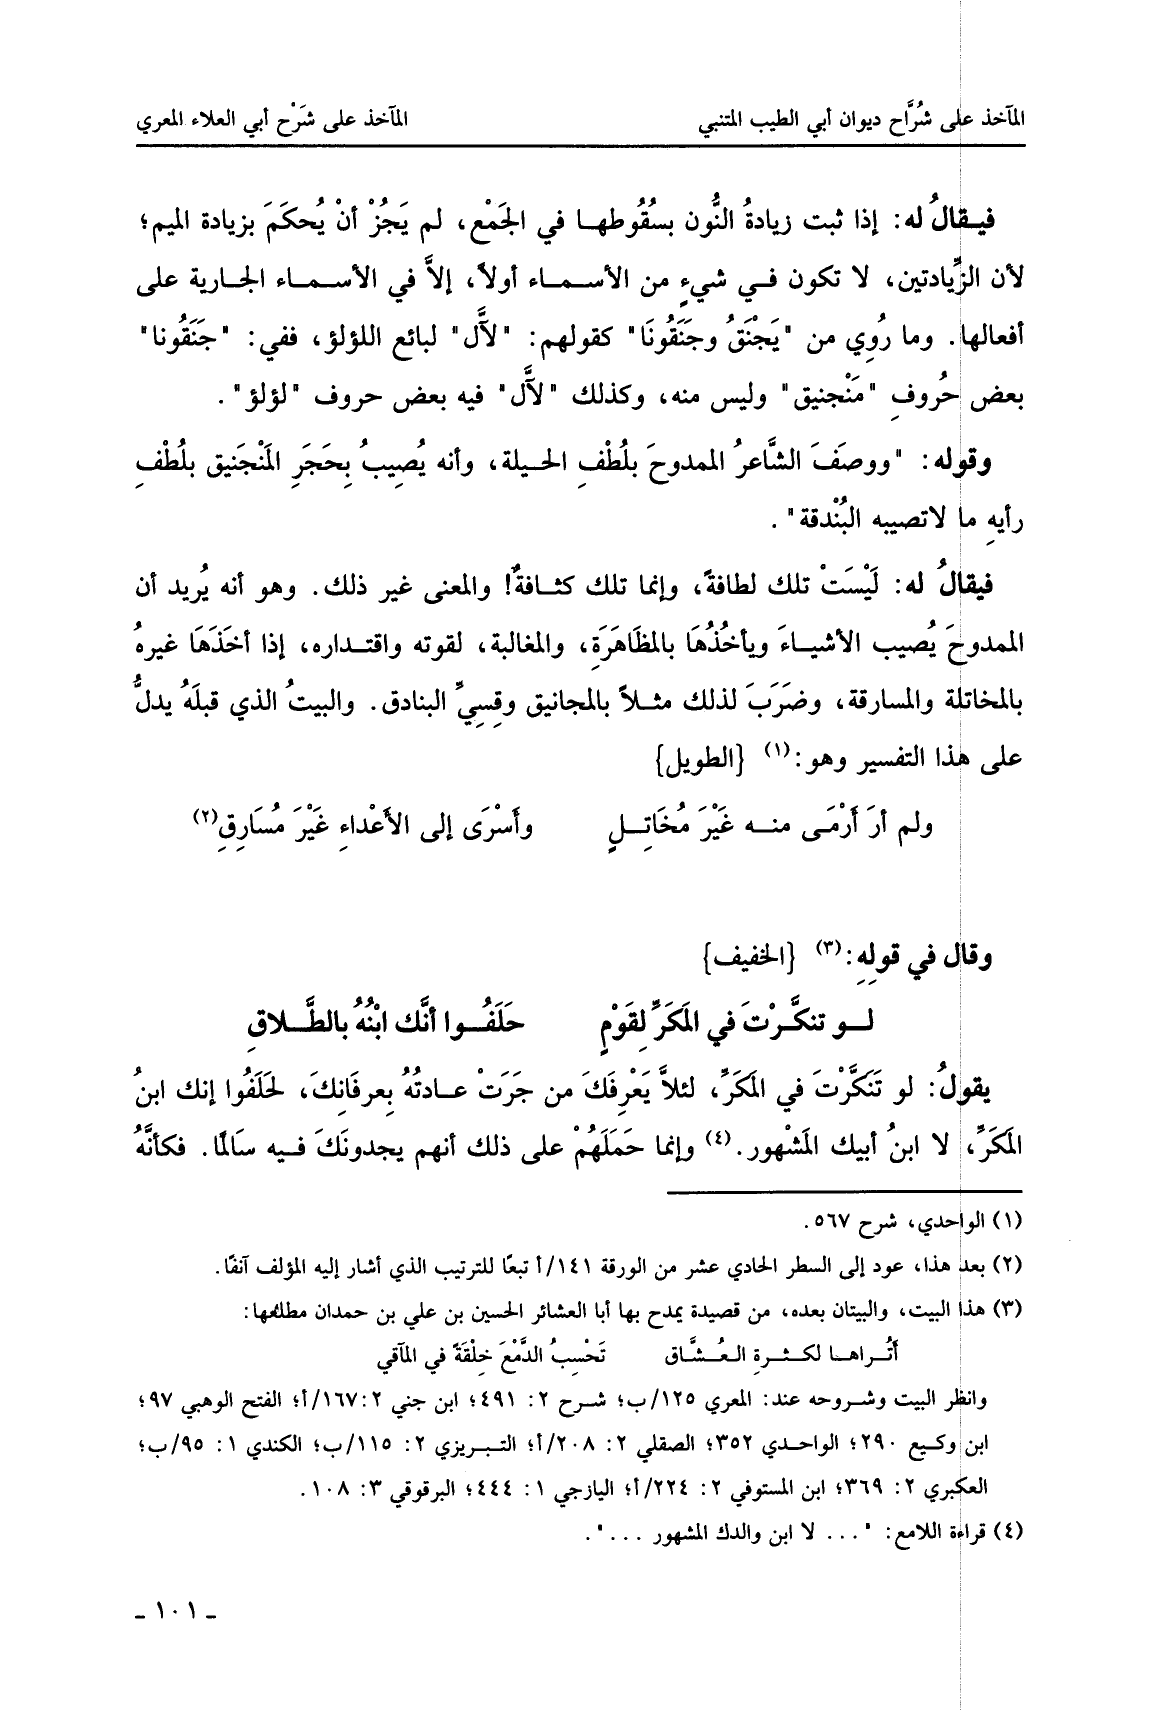 المآخذ على شُرَّاح ديوان أبي الطيب المتنبي المآخذ على شَرْح أبي العلاء المعري
فيقالُ له: إذا ثبت زيادةُ النُّون بسُقُوطها في الجَمْع، لم يَجُزْ أنْ يُحكَمَ بزيادة الميم؛
لأن الزِّيادتين، لا تكون في شيءٍ من الأسماء أولاً، إلاَّ في الأسماء الجارية على
أفعالها. وما رُوِي من "يَجْنَقُ وجَنَقُونَا" كقولهم: "لآَّل" لبائع اللؤلؤ، ففي: "جَنَقُونا"
بعض حُروفِ "مَنْجنيق" وليس منه، وكذلك "لآَّل" فيه بعض حروف "لؤلؤ".
وقوله: "ووصَفَ الشَّاعرُ الممدوحَ بلُطْفِ الحيلة، وأنه يُصِيبُ بِحَجَرِ المَنْجَنيق بلُطْفِ
رأيهِ ما لاتصيبه البُنْدقة".
فيقالُ له: لَيْسَتْ تلك لطافةً، وإنما تلك كثافةٌ! والمعنى غير ذلك. وهو أنه يُريد أن
الممدوحَ يُصيب الأشياءَ ويأخُذُهَا بالمظَاهَرَةِ، والمغالبة، لقوته واقتداره، إذا أخَذَهَا غيرهُ
بالمخاتلة والمسارقة، وضَرَبَ لذلك مثلاً بالمجانيق وقِسِيِّ البنادق. والبيتُ الذي قبلَهُ يدلُّ
على هذا التفسير وهو:(١) {الطويل}
ولم أرَ أَرْمَى منه غَيْرَ مُخَاتِلٍ وأَسْرَى إلى الأَعْداءِ غَيْرَ مُسَارِقِ(٢)
وقال في قولِهِ:(٣) {الخفيف}
لو تنكَّرْتَ في المَكَرِّ لقَوْمٍ حَلَفُوا أنَّك ابْنُهُ بالطَّلاقِ
يقولُ: لو تَنَكَّرْتَ في المَكَرِّ، لئلاَّ يَعْرِفَكَ من جَرَتْ عادتُهُ بِعرفَانِكَ، لحَلَفُوا إنك ابنُ
المَكَرِّ، لا ابنُ أبيك المَشْهور.(٤) وإنما حَمَلَهُمْ على ذلك أنهم يجدونَكَ فيه سَالمًا. فكأنَّهُ
(١) الواحدي، شرح ٥٦٧.
(٢) بعد هذا، عود إلى السطر الحادي عشر من الورقة ١٤١/أ تبعًا للترتيب الذي أشار إليه المؤلف آنفًا.
(٣) هذا البيت، والبيتان بعده، من قصيدة يمدح بها أبا العشائر الحسين بن علي بن حمدان مطلعها:
أَتُراها لكثرةِ العُشَّاق تَحْسِبُ الدَّمْعَ خِلْقَةً في المآقي
وانظر البيت وشروحه عند: المعري ١٢٥/ب؛ شرح ٢: ٤٩١؛ ابن جني ٢:١٦٧/أ؛ الفتح الوهبي ٩٧؛
ابن وكيع ٢٩٠؛ الواحدي ٣٥٢؛ الصقلي ٢: ٢٠٨/أ؛ التبريزي ٢: ١١٥/ب؛ الكندي ١: ٩٥/ب؛
العكبري ٢: ٣٦٩؛ ابن المستوفي ٢: ٢٢٤/أ؛ اليازجي ١: ٤٤٤؛ البرقوقي ٣: ١٠٨.
(٤) قراءة اللامع: "... لا ابن والدك المشهور ...".
- ١٠١ -